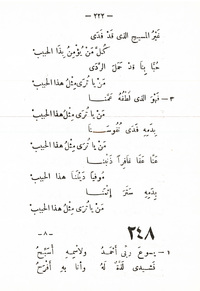 — ٢٢٢ —
غَيْرُ المسيحِ الذى قَدْ فَدَى
كُلَّ مَنْ يُؤْمِنُ بِذَا الحبيب
حُبًّا بِنَا قَدْ حَمَلَ الرَّدَى
مَنْ يا تُرَى مِثْلُ هذا الحبيب
٣ — فَهْوَ الذى لُطْفُهُ عَمَّنا
مَنْ يا تُرَى مِثْلُ هذا الحبيب
بِدَمِهِ فَدَى نُفُوسَنا
مَنْ يا تُرَى مِثْلُ هذا الحبيب
عَنَّا عَفَا غَافِرًا ذَنْبَنا
مُوفِيًا دَيْنَنَا هذا الحبيب
بِدَمِهِ سَتَرَ إِثْمَنا
مَنْ يا تُرَى مِثْلُ هذا الحبيب
٢٤٨
— ٨ —
١ — يسوعَ ربِّى أَحْمَدُ ولاسْمِهِ أُسَبِّحُ
فَنَشِيدى لَذَّةٌ لَهُ وأنا بِهِ أَفْرَحُ